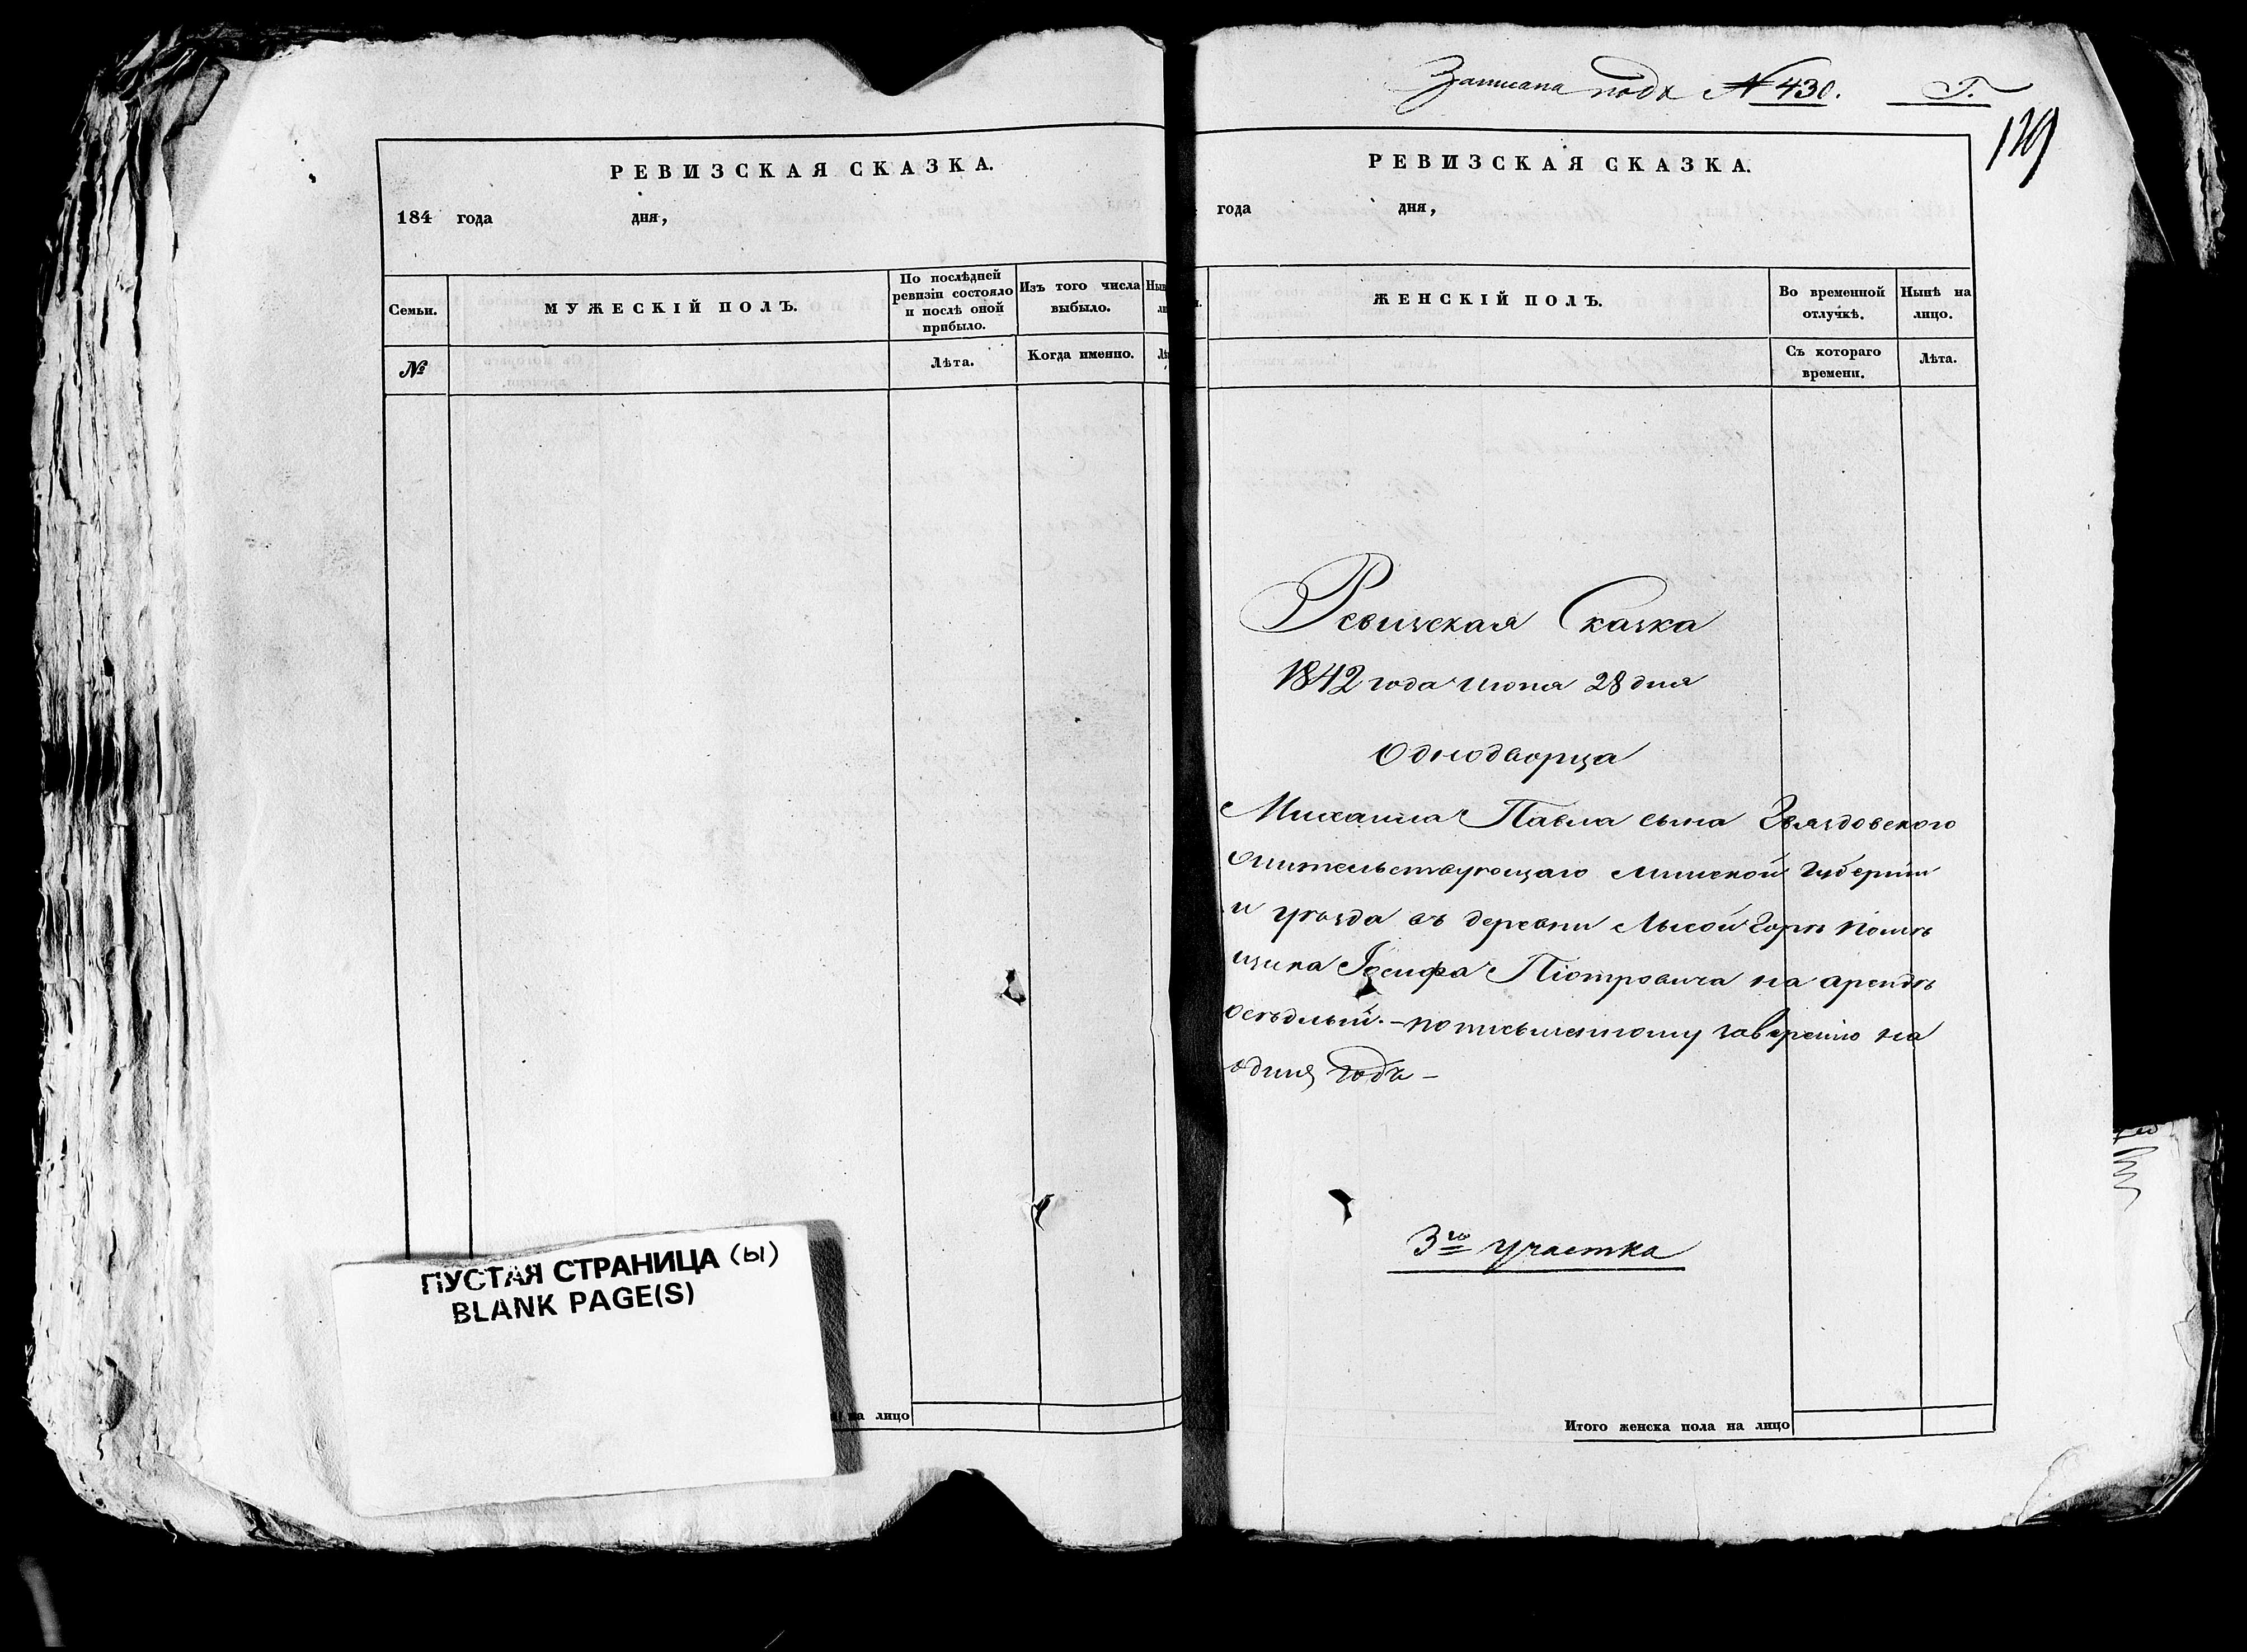 РЕВИЗСКАЯ СКАЗКА.
184 года дня,
Семьи.
МУЖЕСКІЙ ПОЛЪ.
По послѣдней
ревизіи состояло
и послѣ оной
прибыло.
Изъ того числа
выбыло.
№
Лѣта.
Когда именно.
на лицо
ПУСТАЯ СТРАНИЦА (Ы)
BLANK PAGE(S)
Записана подъ № 430.
РЕВИЗСКАЯ СКАЗКА.
года дня,
ЖЕНСКІЙ ПОЛЪ.
Во временной
отлучкѣ.
Нынѣ на
лицо.
Съ котораго
времени.
Лѣта.
Ревизская Сказка
1842 года июня 28 дня
Однодворца
Михаила Павла сына Гвяздовского
жительствующаго минской губерніи
и уѣзда въ деревни Лысой Горѣ помѣ
щика Іосифа Піотровича на арендѣ
осѣдлый. – по письменному заверению на
одинъ годъ –
3го участка
Итого женска пола на лицо